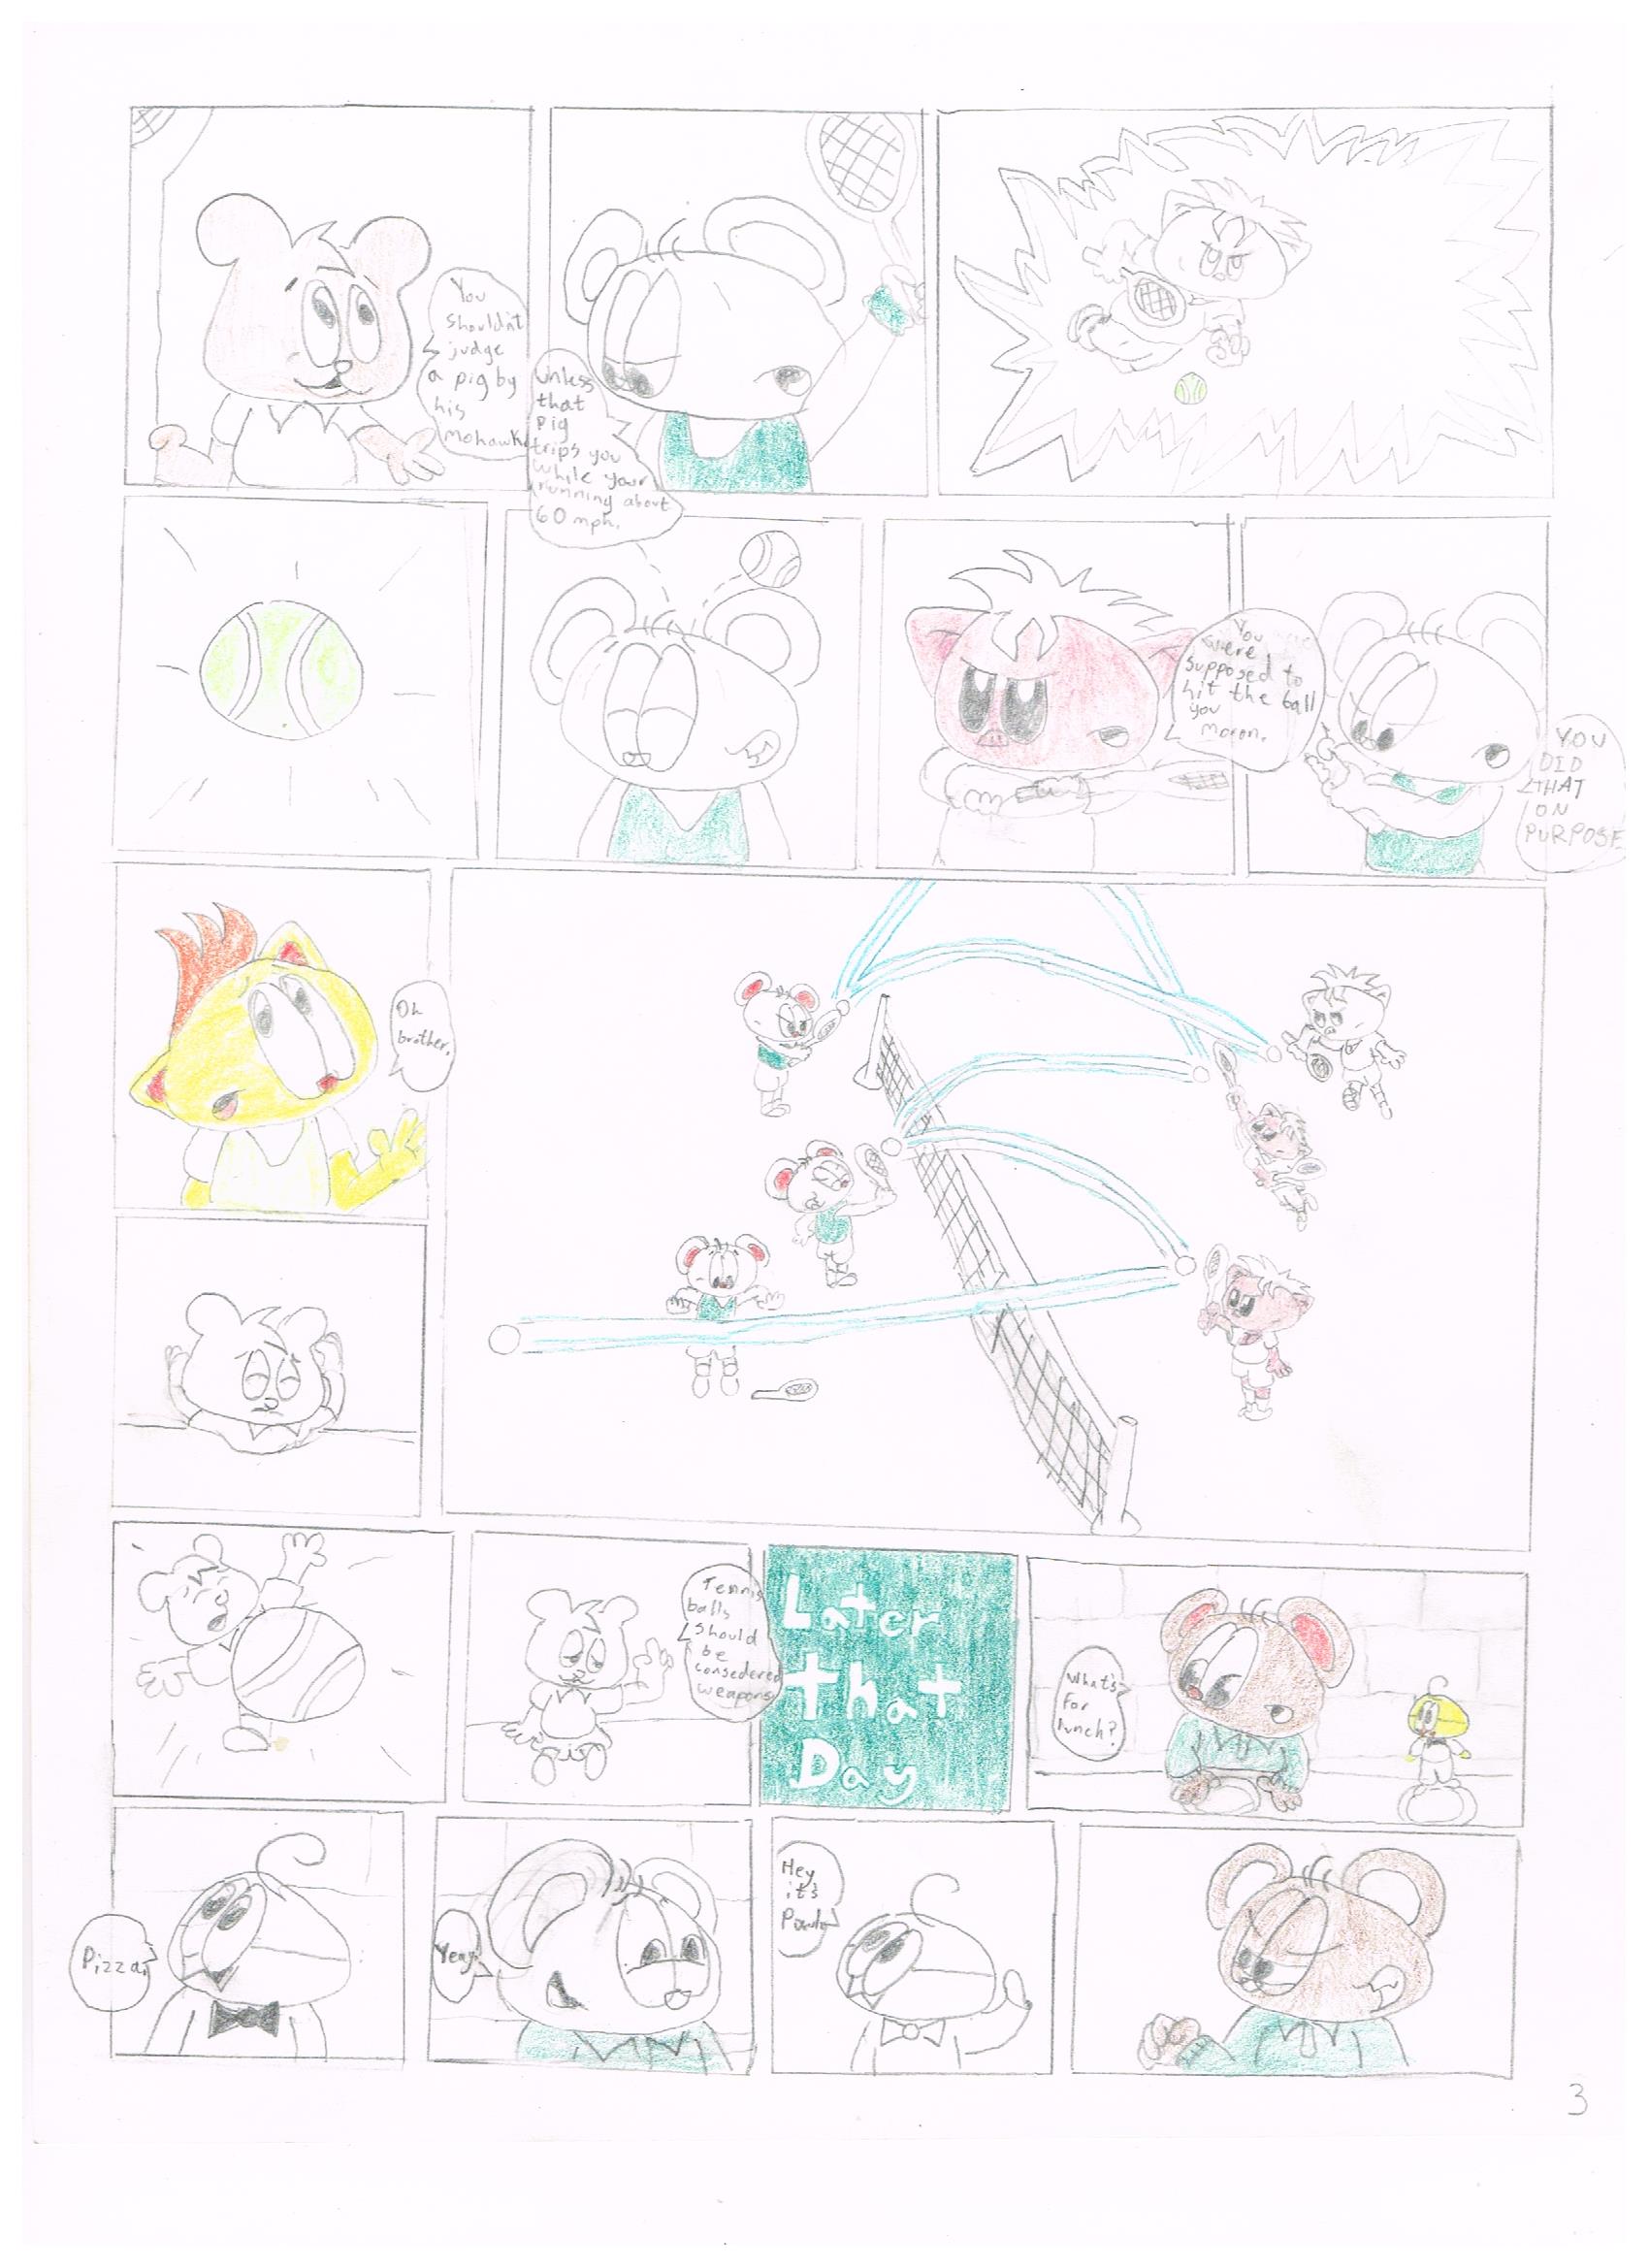 You
shouldn't
judge
a pig by
his
mohawk
Unless
that
pig
trips you
while your
running about
60 mph.
You
were
supposed to
hit the ball
you
moron.
YOU
DID
THAT
ON
PURPOSE
Oh
brother.
Tennis
balls
should
be
consedered
weapons
Later
that
Day
What's
for
lunch?
Pizza.
Yeay
Hey
it's
3